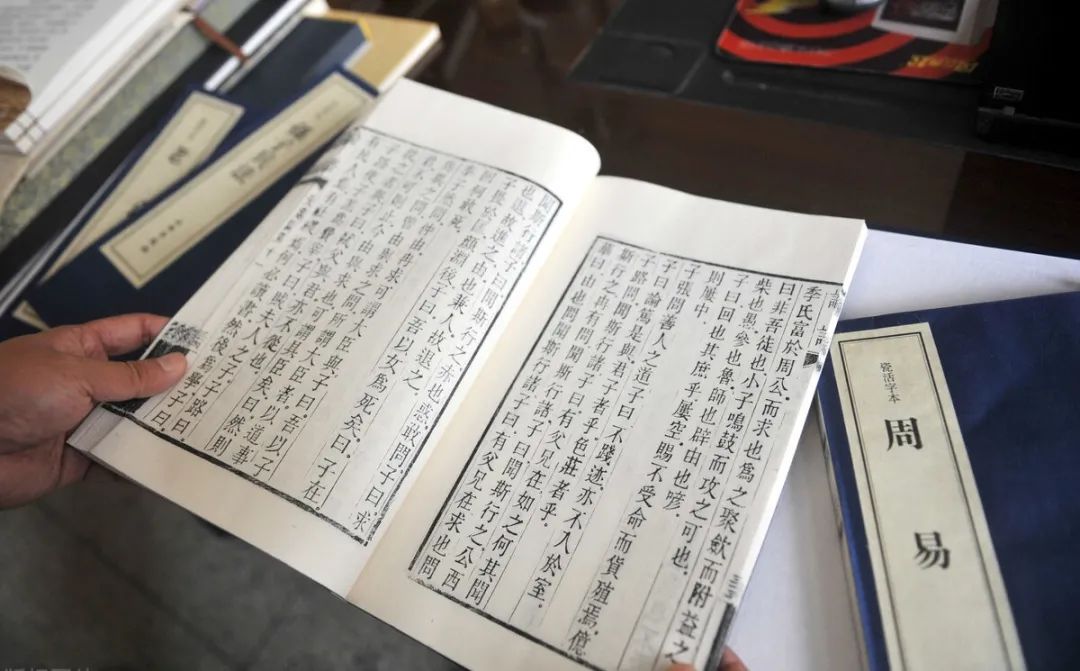 季氏富於周公而求也為之聚斂而附益之
曰非吾徒也小子鳴鼓而攻之可也
柴也愚參也魯師也辟由也喭
子曰回也其庶乎屢空賜不受命而貨殖焉億
則屢中
子張問善人之道子曰不踐迹亦不入於室
子曰論篤是與君子者乎色莊者乎
子路問聞斯行諸子曰有父兄在如之何其聞
斯行之冉有問聞斯行諸子曰聞斯行之公西
華曰由也問聞斯行諸子曰有父兄在求也問
聞斯行諸子曰聞斯行之赤也惑敢問子曰求
也退故進之由也兼人故退之
子畏於匡顏淵後子曰吾以女為死矣曰子在
回何敢死
季子然問仲由冉求可謂大臣與子曰吾以子
為異之問曾由與求之問所謂大臣者以道事
君不可則止今由與求也可謂具臣矣曰然則
從之者與子曰弒父與君亦不從也
子路使子羔為費宰子曰賊夫人之子子路曰
有民人焉有社稷焉何必讀書然後為學子曰
瓷活字本
周易